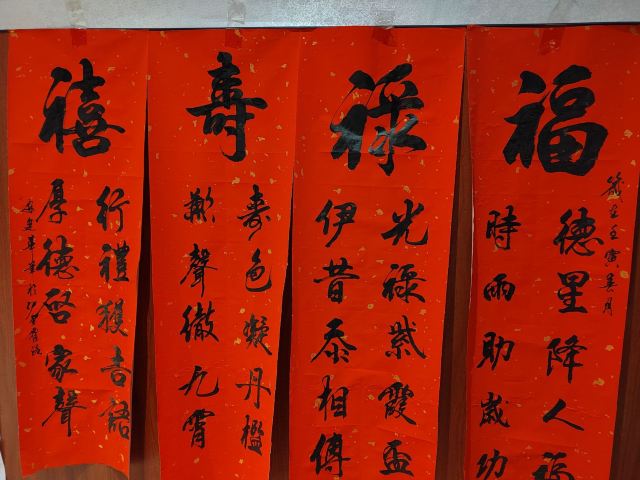 福
歲在壬寅春月
德星降人福
時雨助歲功
祿
光祿紫霞盃
伊昔忝相傳
壽
壽色凝丹檻
歡聲徹九霄
禧
行禮獲吉語
厚德啓家聲